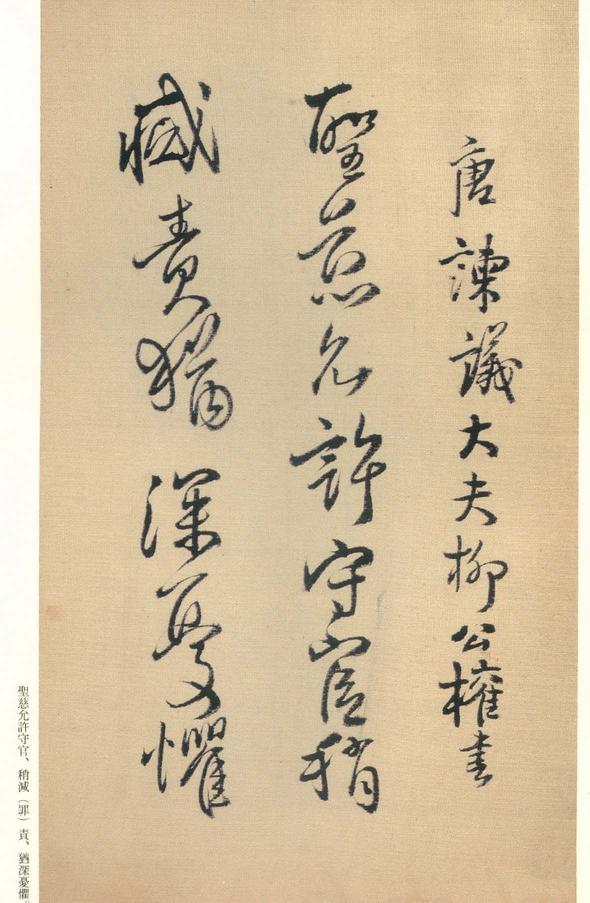 唐諫議大夫柳公權書
聖慈允許守官稍
減責猶深憂懼
聖慈允許守官、稍減（罪）責、猶深憂懼。